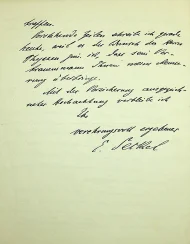 treffen.
Vorstehende Zeilen schreibe ich gerade
heute, weil es der Wunsch des Herrn
Thyssen ist, dass sein
Ihnen
überbringe.
Mit der Versicherung ausgezeich-
neter Hochachtung verbleibe ich
Ihr
verehrungsvoll ergebener
E.